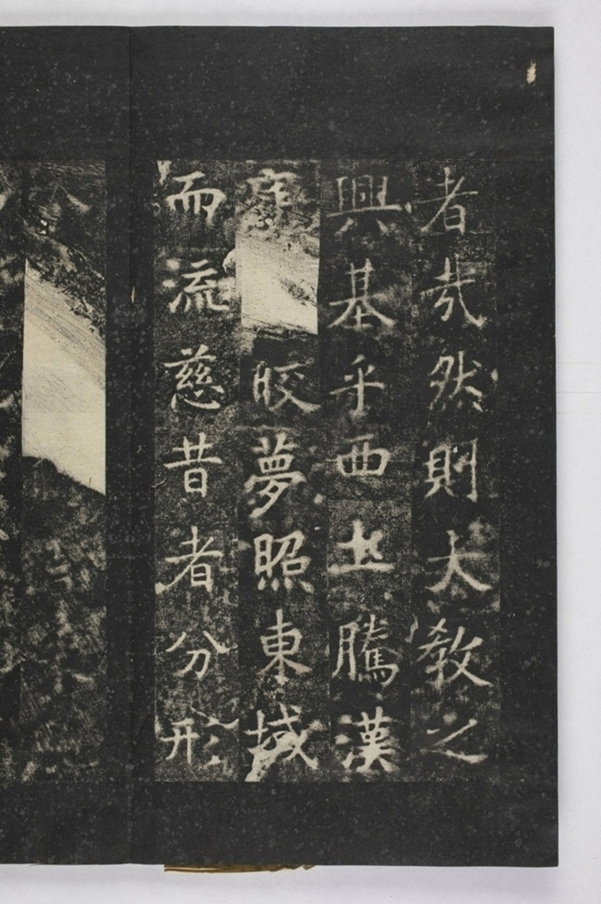 者哉然則大教之
興基乎西土騰漢
庭皎夢照東域
而流慈昔者分形